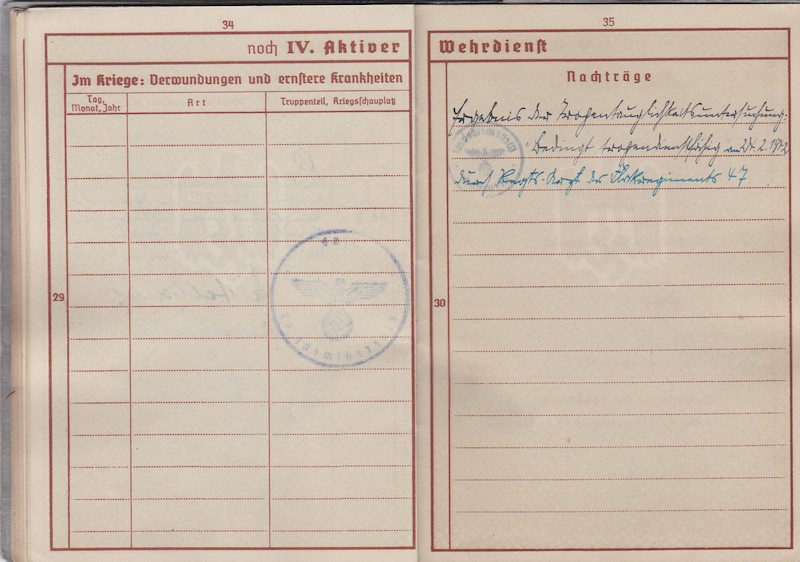 34
noch IV. Aktiver
Im Kriege: Verwundungen und ernstere Krankheiten
Tag, Monat, Jahr
Art
Truppenteil, Kriegsschauplatz
29
35
Wehrdienst
Nachträge
Ergebnis der Tropentauglichkeitsuntersuchung:
"Bedingt tropendienstfähig am 24.2.1942
durch Regts-Arzt des Artl.regiments 47.
30